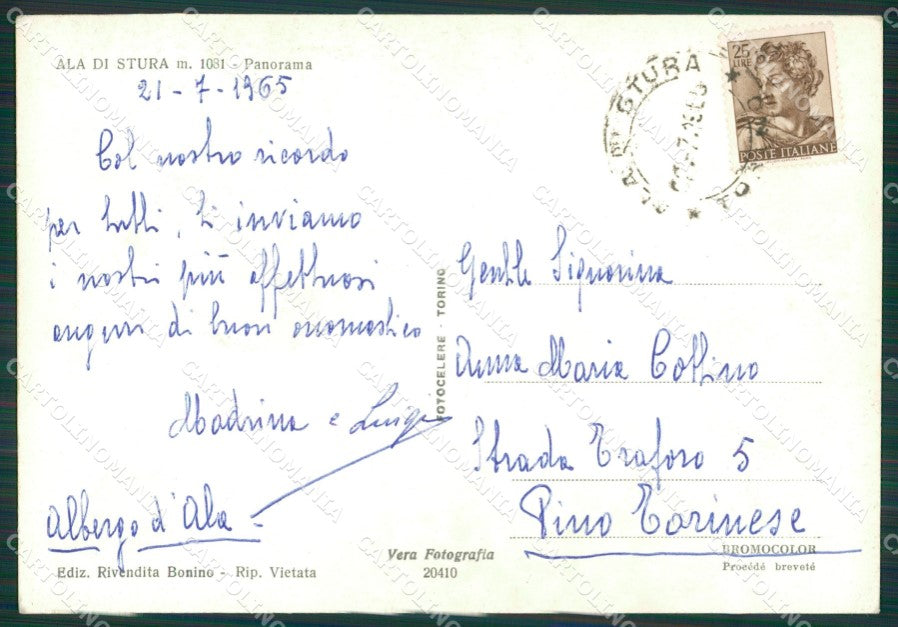 ALA DI STURA m. 1081 - Panorama
21-7-1965
Col nostro ricordo
per tutti, ti inviamo
i nostri più affettuosi
auguri di buon onomastico
Madrina e Luigi
Albergo d'Ala -
Ediz. Rivendita Bonino - Rip. Vietata
Vera Fotografia
20410
FOTOCELERE - TORINO
25
LIRE
POSTE ITALIANE
STURA
Gentile Signorina
Anna Maria Collino
Strada Traforo 5
Pino Torinese
BROMOCOLOR
Procédé breveté
CARTOLINOMANIA